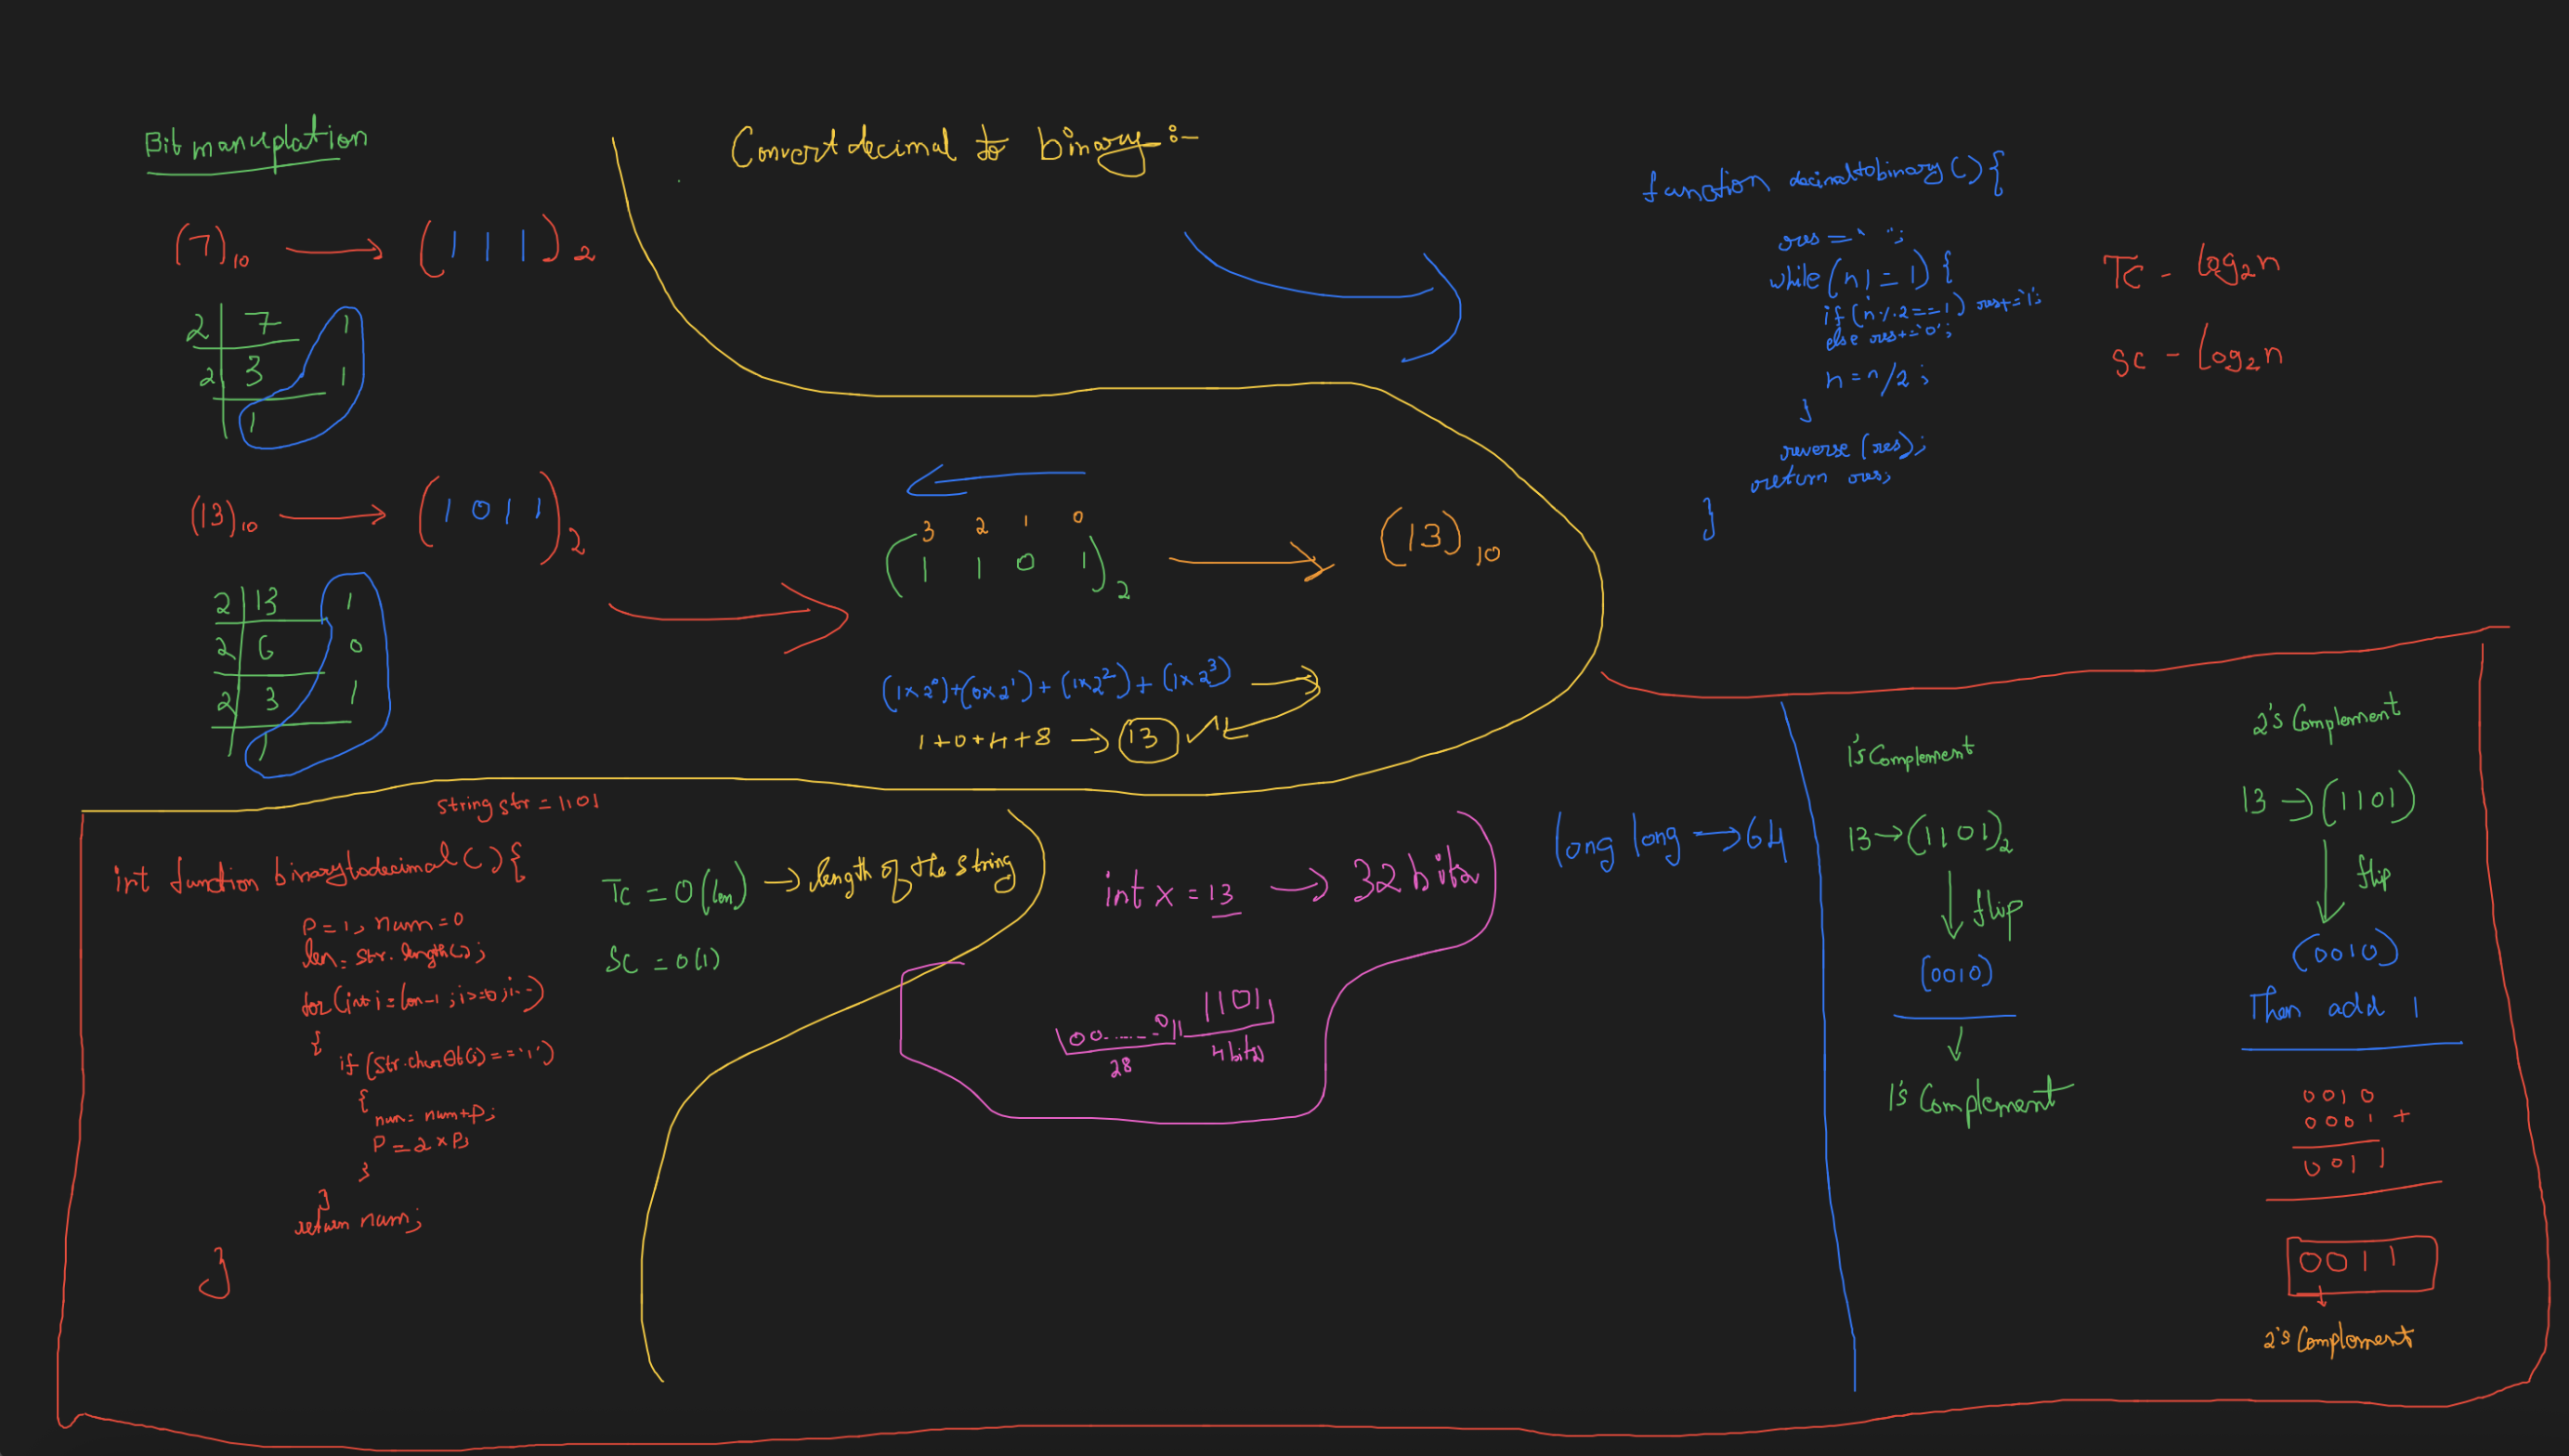 Bit manuplation
(7)10 → (1 1 1)2
2 7 1
2 3 1
1
(13)10 → (1 0 1 1)2
2 13 1
2 6 0
2 3 1
1
Convert decimal to binary :-
3 2 1 0
(1 1 0 1)2 → (13)10
(1×2⁰)+(0×2¹)+(1×2²)+(1×2³)
1+0+4+8 → 13 ✓
function decimaltobinary() {
res = " ";
while (n != 1) {
if (n % 2 == 1) res += '1';
else res += '0';
n = n/2;
}
reverse (res);
return res;
}
TC - log2n
SC - log2n
string str = 1101
int function binarytodecimal() {
P = 1, num = 0
len = str.length();
for (int i = len-1; i >= 0; i--)
{
if (str.charAt(i) == '1')
{
num = num + P;
P = 2 × P;
}
}
return num;
}
TC = O(len) → length of the string
SC = O(1)
int x = 13 → 32 bits
00.....0 1101
28 4 bits
long long → 64
1's Complement
13 → (1101)2
flip
(0010)
1's Complement
2's Complement
13 → (1101)
flip
(0010)
Then add 1
0010
0001 +
0011
0011
2's Complement